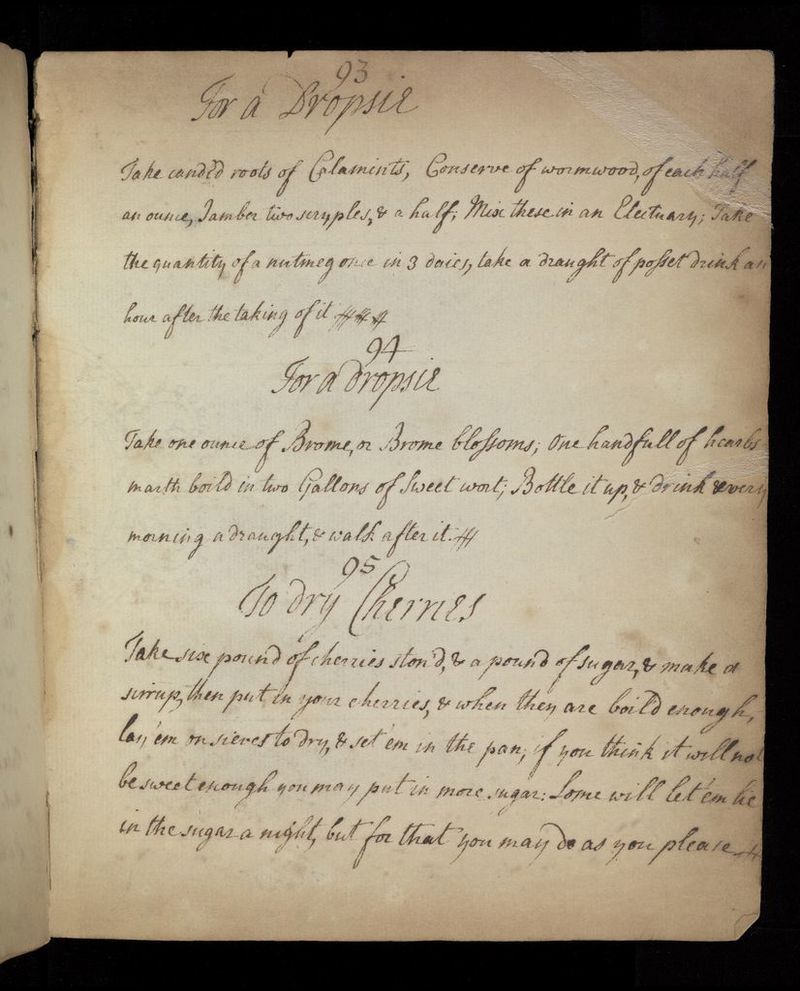 93
For a Dropsie
Take candid roots of Calamints, Conserve of wormwood, of each half
an ounce, Jamber two scruples, & a half; Mix these in an Electuary; Take
the quantity of a nutmeg once in 3 daies, take a draught of posset drink an
hour after the taking of it
94
For a dropsie
Take one ounce of Brome, or Brome blossoms; One handfull of hearbs
marth boild in two Gallons of Sweet wort; Bottle it up, & drink every
morning a draught, & walk after it.
95
To dry Cherries
Take six pound of cherries ston'd, & a pound of sugar, & make a
sirrup, then put in your cherries, & when they are boil'd enough,
lay 'em on sieves to dry, & set 'em in the pan; if you think it will not
be sweet enough you may put in more sugar: Some will let 'em lie
in the sugar a night, but for that you may do as you please